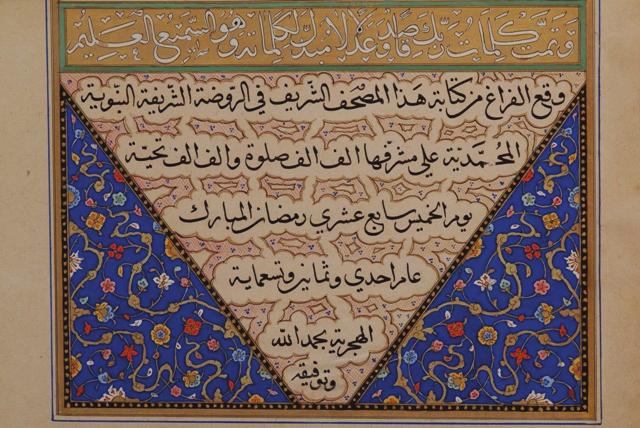 وتمت كلمات ربك صدقا وعدلا لا مبدل لكلماته وهو السميع العليم
وقع الفراغ من كتابة هذا المصحف الشريف في الروضة الشريفة النبوية
المحمدية على مشرفها الف الف صلوة والف الف تحية
يوم الخميس سابع عشري رمضان المبارك
عام احدي وثمانين وتسعماية
الهجرية بحمد الله
وتوفيقه